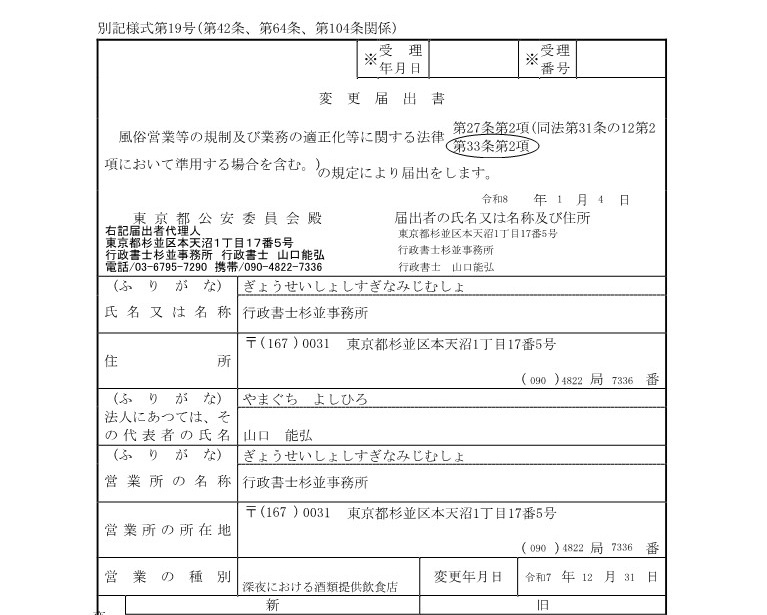 別記様式第19号(第42条、第64条、第104条関係)
※受理年月日
※受理番号
変更届出書
風俗営業等の規制及び業務の適正化等に関する法律
第27条第2項(同法第31条の12第2
第33条第2項
項において準用する場合を含む。)
の規定により届出をします。
令和8 年 1 月 4 日
東京都公安委員会殿
届出者の氏名又は名称及び住所
右記届出者代理人
東京都杉並区本天沼1丁目17番5号
行政書士杉並事務所 行政書士 山口能弘
電話/03-6795-7290 携帯/090-4822-7336
東京都杉並区本天沼1丁目17番5号
行政書士杉並事務所
行政書士 山口能弘
(ふりがな) ぎょうせいしょしすぎなみじむしょ
氏名又は名称 行政書士杉並事務所
住所
〒(167)0031 東京都杉並区本天沼1丁目17番5号
(090)4822 局 7336 番
(ふりがな) やまぐち よしひろ
法人にあつては、そ
の代表者の氏名 山口 能弘
(ふりがな) ぎょうせいしょしすぎなみじむしょ
営業所の名称 行政書士杉並事務所
営業所の所在地
〒(167)0031 東京都杉並区本天沼1丁目17番5号
(090)4822 局 7336 番
営業の種別 深夜における酒類提供飲食店 変更年月日 令和7 年 12 月 31 日
新 旧